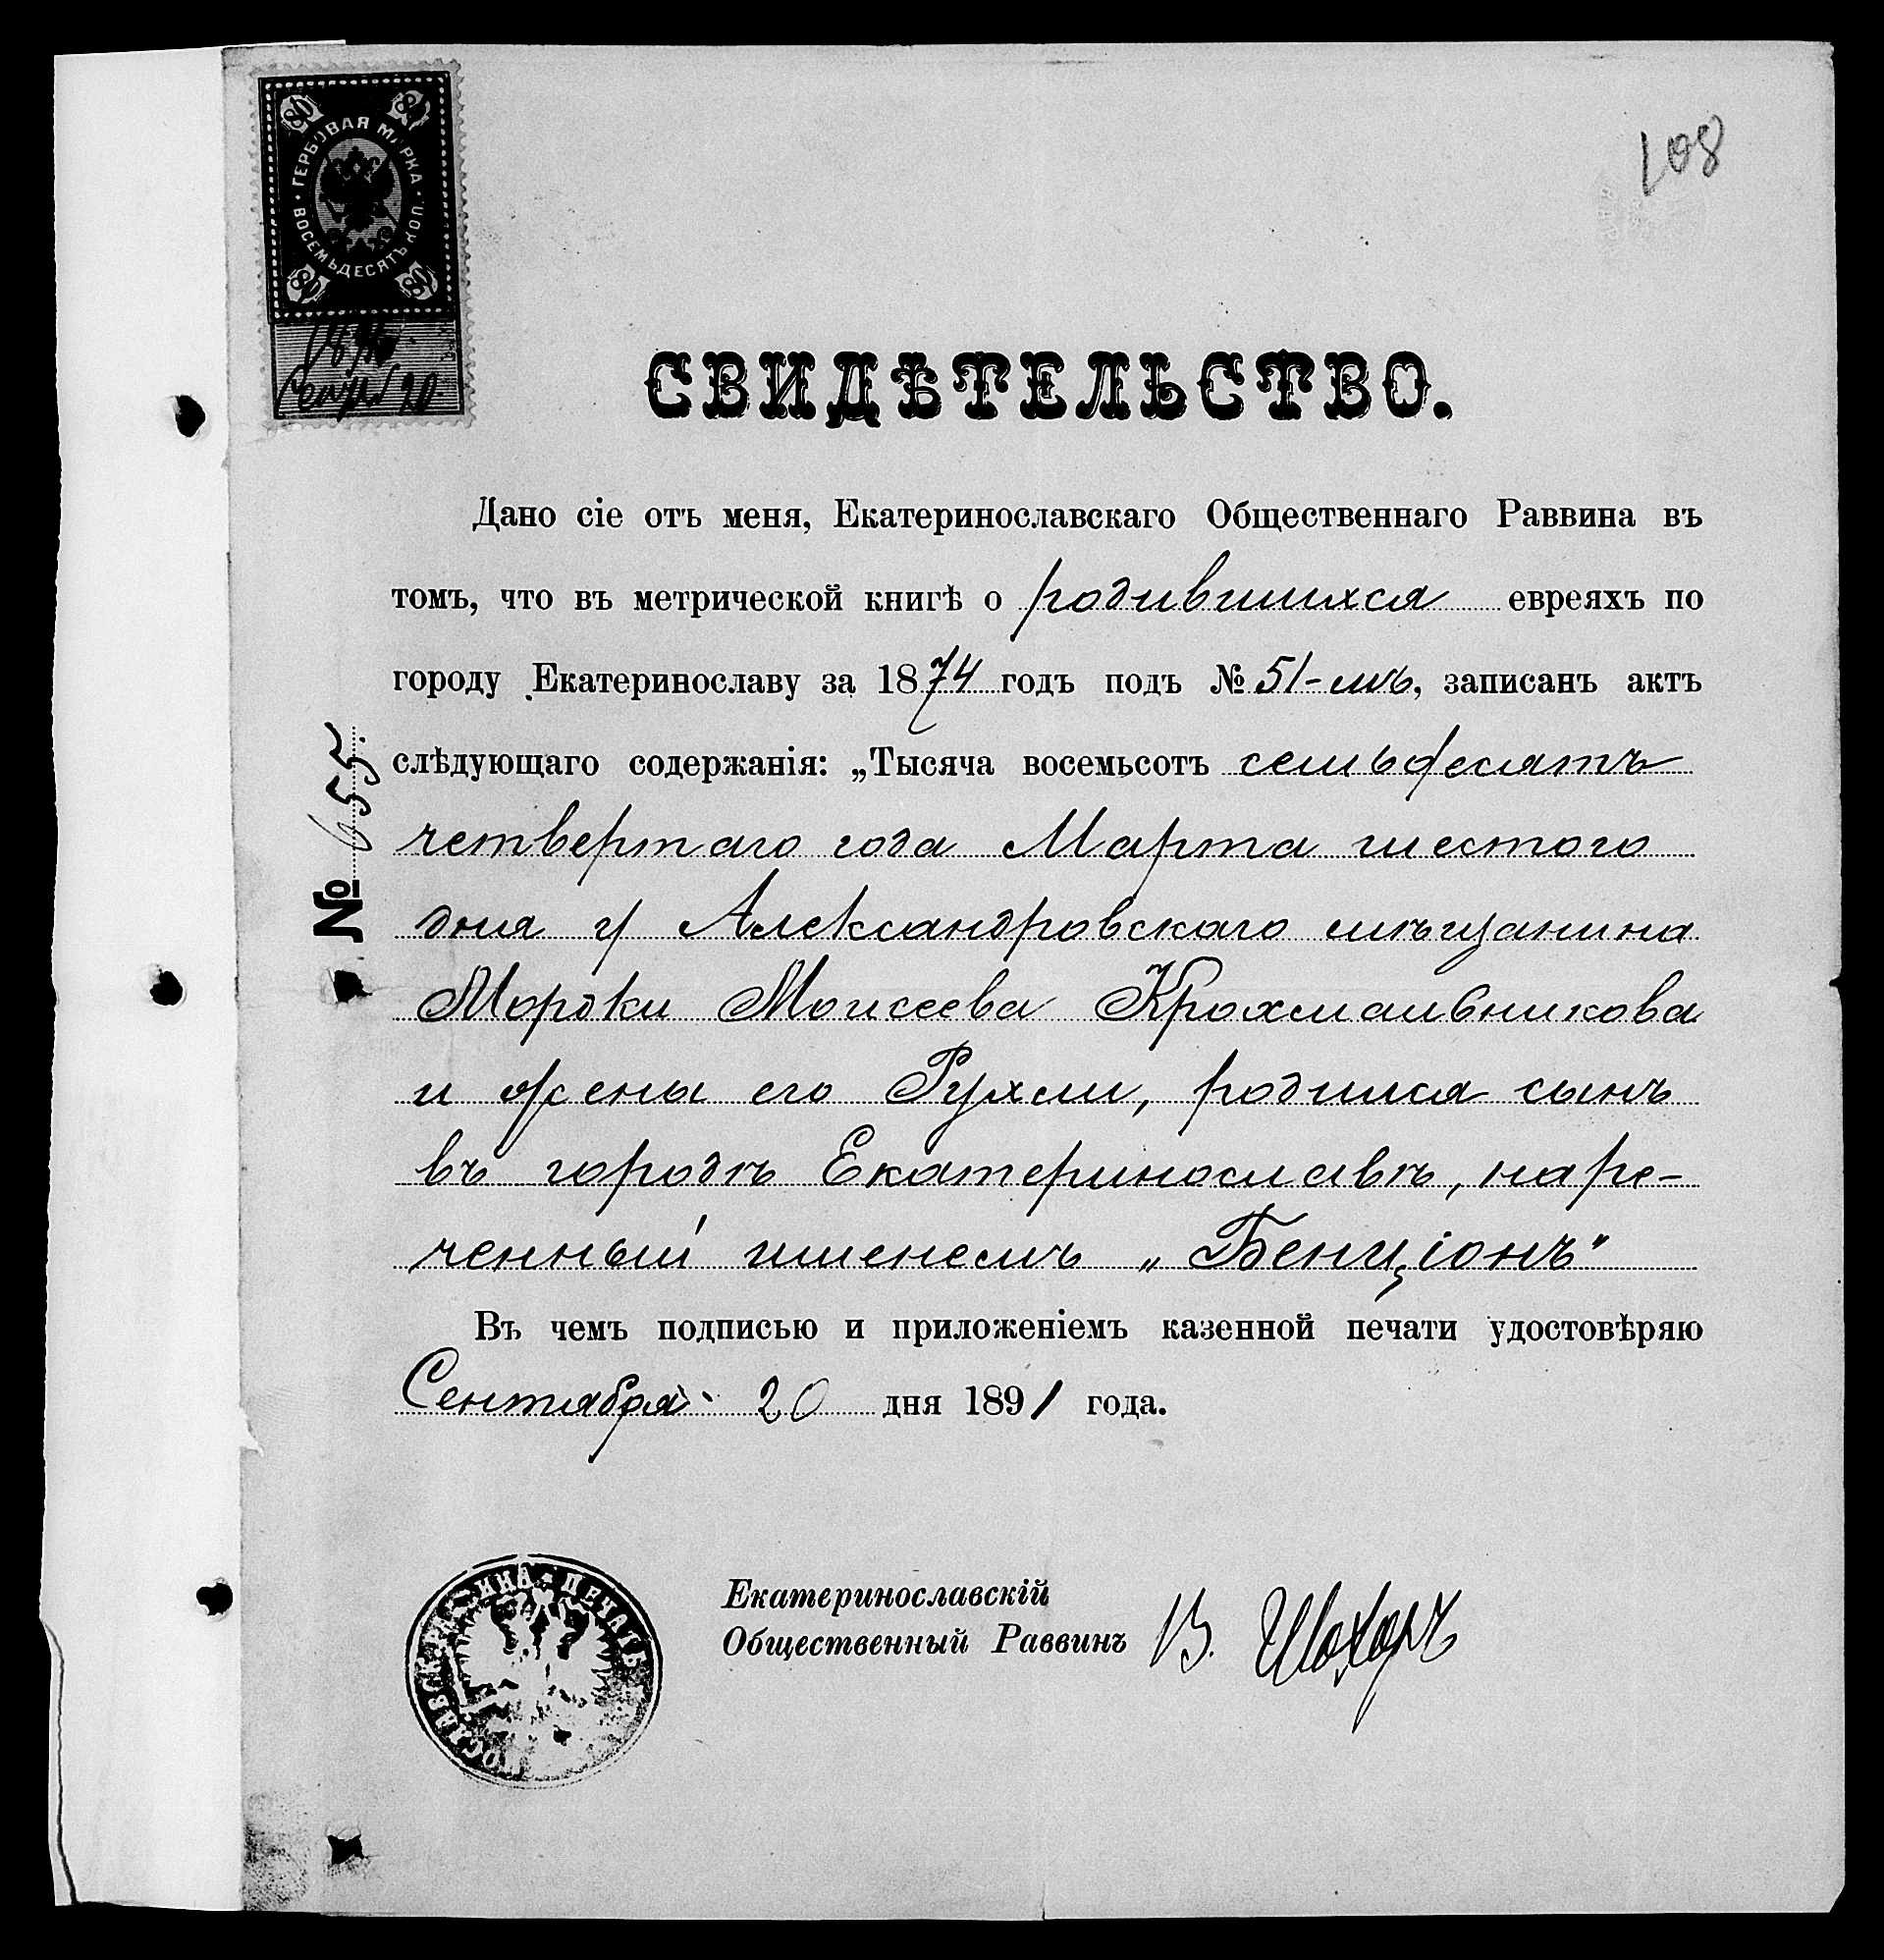 80 80
ГЕРБОВАЯ МАРКА
ВОСЕМЬДЕСЯТЪ КОП.
80 80
20
108
СВИДѢТЕЛЬСТВО.
Дано сіе отъ меня, Екатеринославскаго Общественнаго Раввина въ
томъ, что въ метрической книгѣ о родившихся евреяхъ по
городу Екатеринославу за 1874 годъ подъ № 51-мъ, записанъ актъ
слѣдующаго содержанія: „Тысяча восемьсотъ семьдесятъ
четвертаго года Марта шестого
дня у Александровскаго мѣщанина
Мордки Моисеева Крохмальникова
и жены его Рухли, родился сынъ
въ городѣ Екатеринославѣ, наре-
ченный именемъ „Бенціонъ"
Въ чемъ подписью и приложеніемъ казенной печати удостовѣряю
Сентября 20 дня 1891 года.
№ 655.
Екатеринославскій
Общественный Раввинъ В. Шохоръ
ПЕЧАТЬ